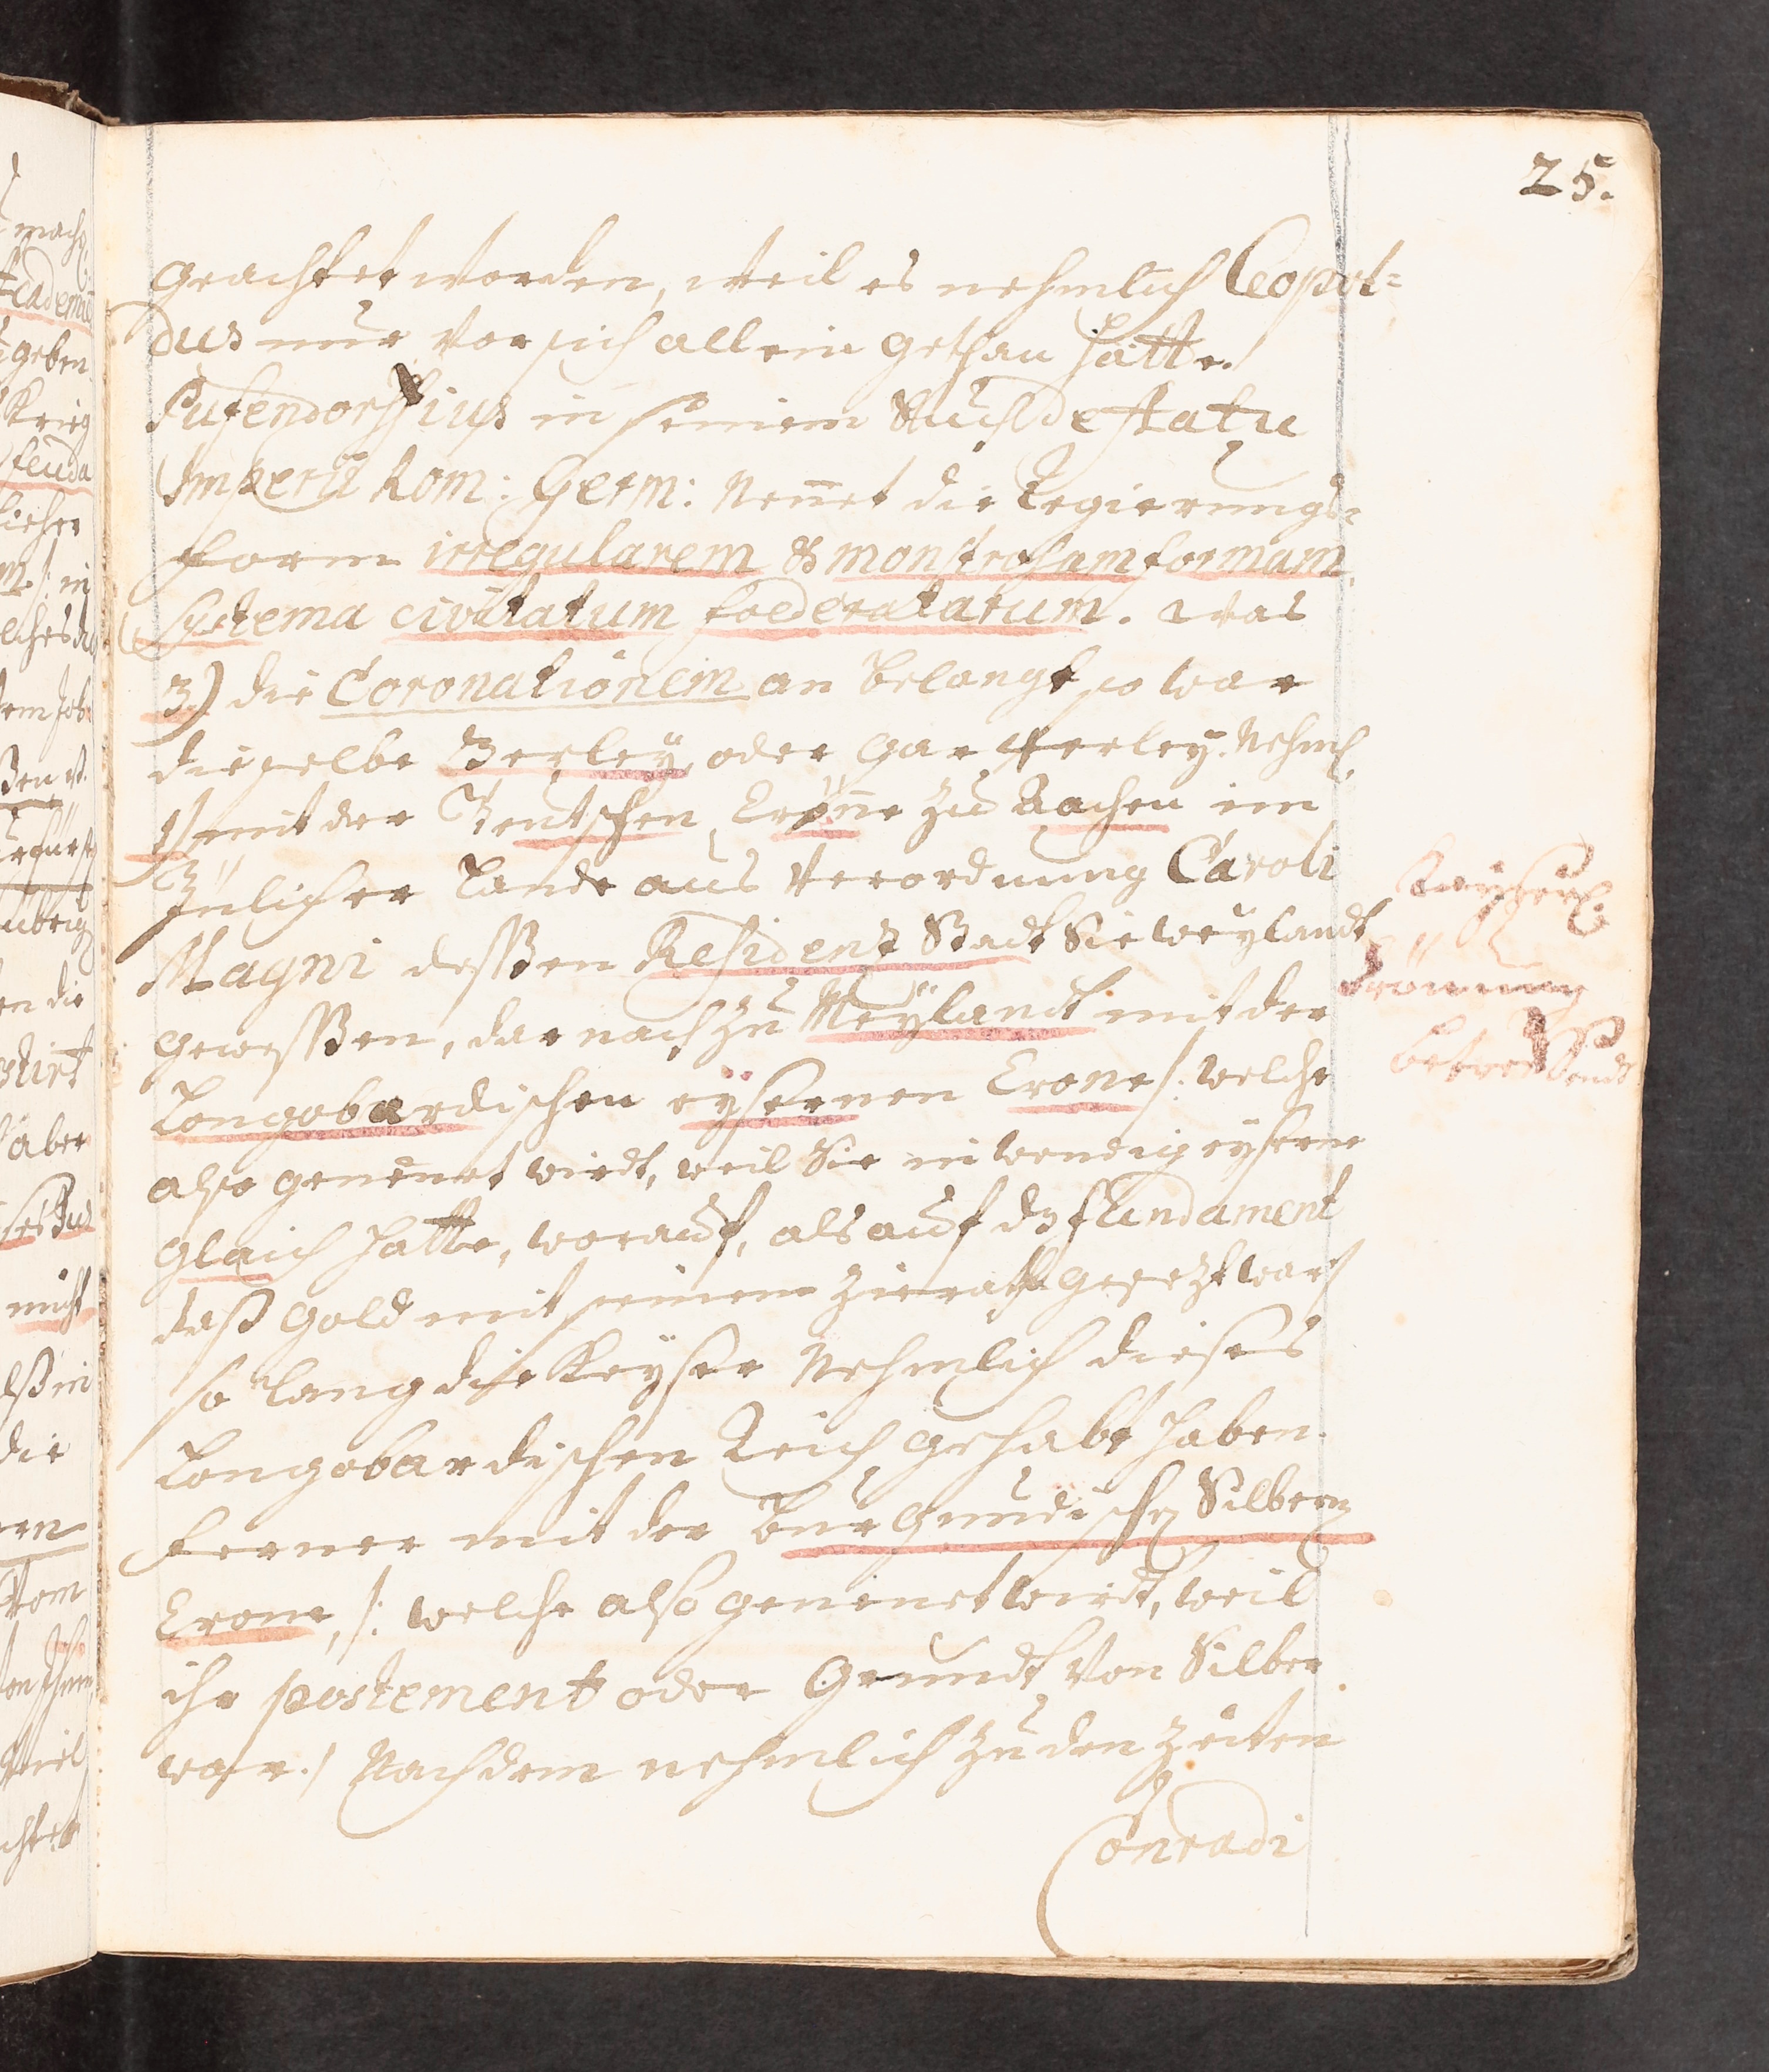 25.
geachtet worden, weil es nehmlich Leopol=
dus nur vor sich allein gethan hätte.
Pufendorffius in seinem Buch de statu
Imperii Rom: Germ: Nen̄et die Regierungs=
form irregularem & monstrosam formam
systema civitatum foederatarum. Was
3) die Coronationem an belangt, so war
dieselbe 3erley, oder gar 4erley. Nehml.
1) mit der Teutschen Crone zu Aachen im
Jülicher Lande aus Verordnung Caroli
Magni deßen Residenz Stadt Sie weylandt
geweßen, darnach zu Meylandt mit der
Longobardischen eysernen Crone /: welche
also genen̄et wirdt, weil Sie inwendig eyserne
Glaich hatte, worauf, als auf dz fundament
daß Gold mit seinem Zierath gesezt war/
so lang die Keyser Nehmlich dieses
Longobardischen Reich gehabt haben.
ferner mit der Burgundischen Silbern
Crone, /: welche also genen̄et wirdt, weil
ihr postement oder Grundt von Silber
war./ Nachdem nehmlich zu den Zeiten
Conradi
Kayserl.
Crönung
betreffendt